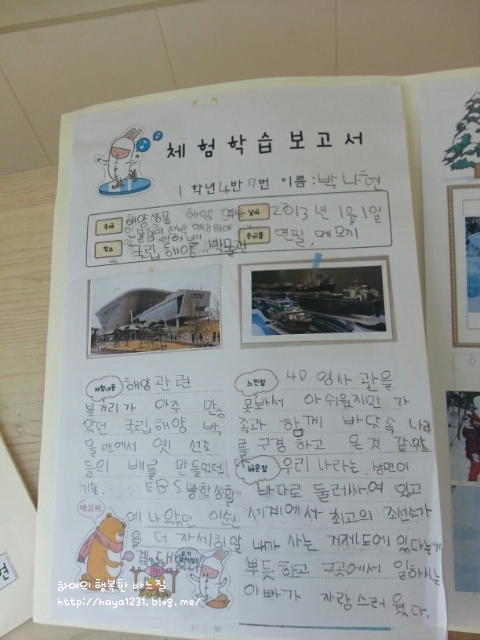 체험학습보고서
1 학년 4반 7번 이름: 박나현
주제
해양생물 해양 역사
인물
대하여
알아보기
날짜
2013년 1월 1일
장소
국립 해양 박물관
준비물
연필, 메모지
체험내용
해양관련
볼거리가 아주 많
았던 국립해양 박
물관에서 옛 선조
들의 배를 만들었던
기술, EBS 방학생활
에 나왔던 이순신
을 더 자세히 알
느낀점
4D 영상관을
못봐서 아쉬웠지만 가
족과 함께 바닷속 나라
를 구경하고 온것 같았
배운점
우리나라는 삼면이
바다로 둘러싸여 있고
세계에서 최고의 조선소가
내가 사는 거제도에 있다는게
뿌듯하고 그곳에서 일하시는
아빠가 자랑스러웠다.
하야의 행복한 바느질
http://haya1231.blog.me/
현